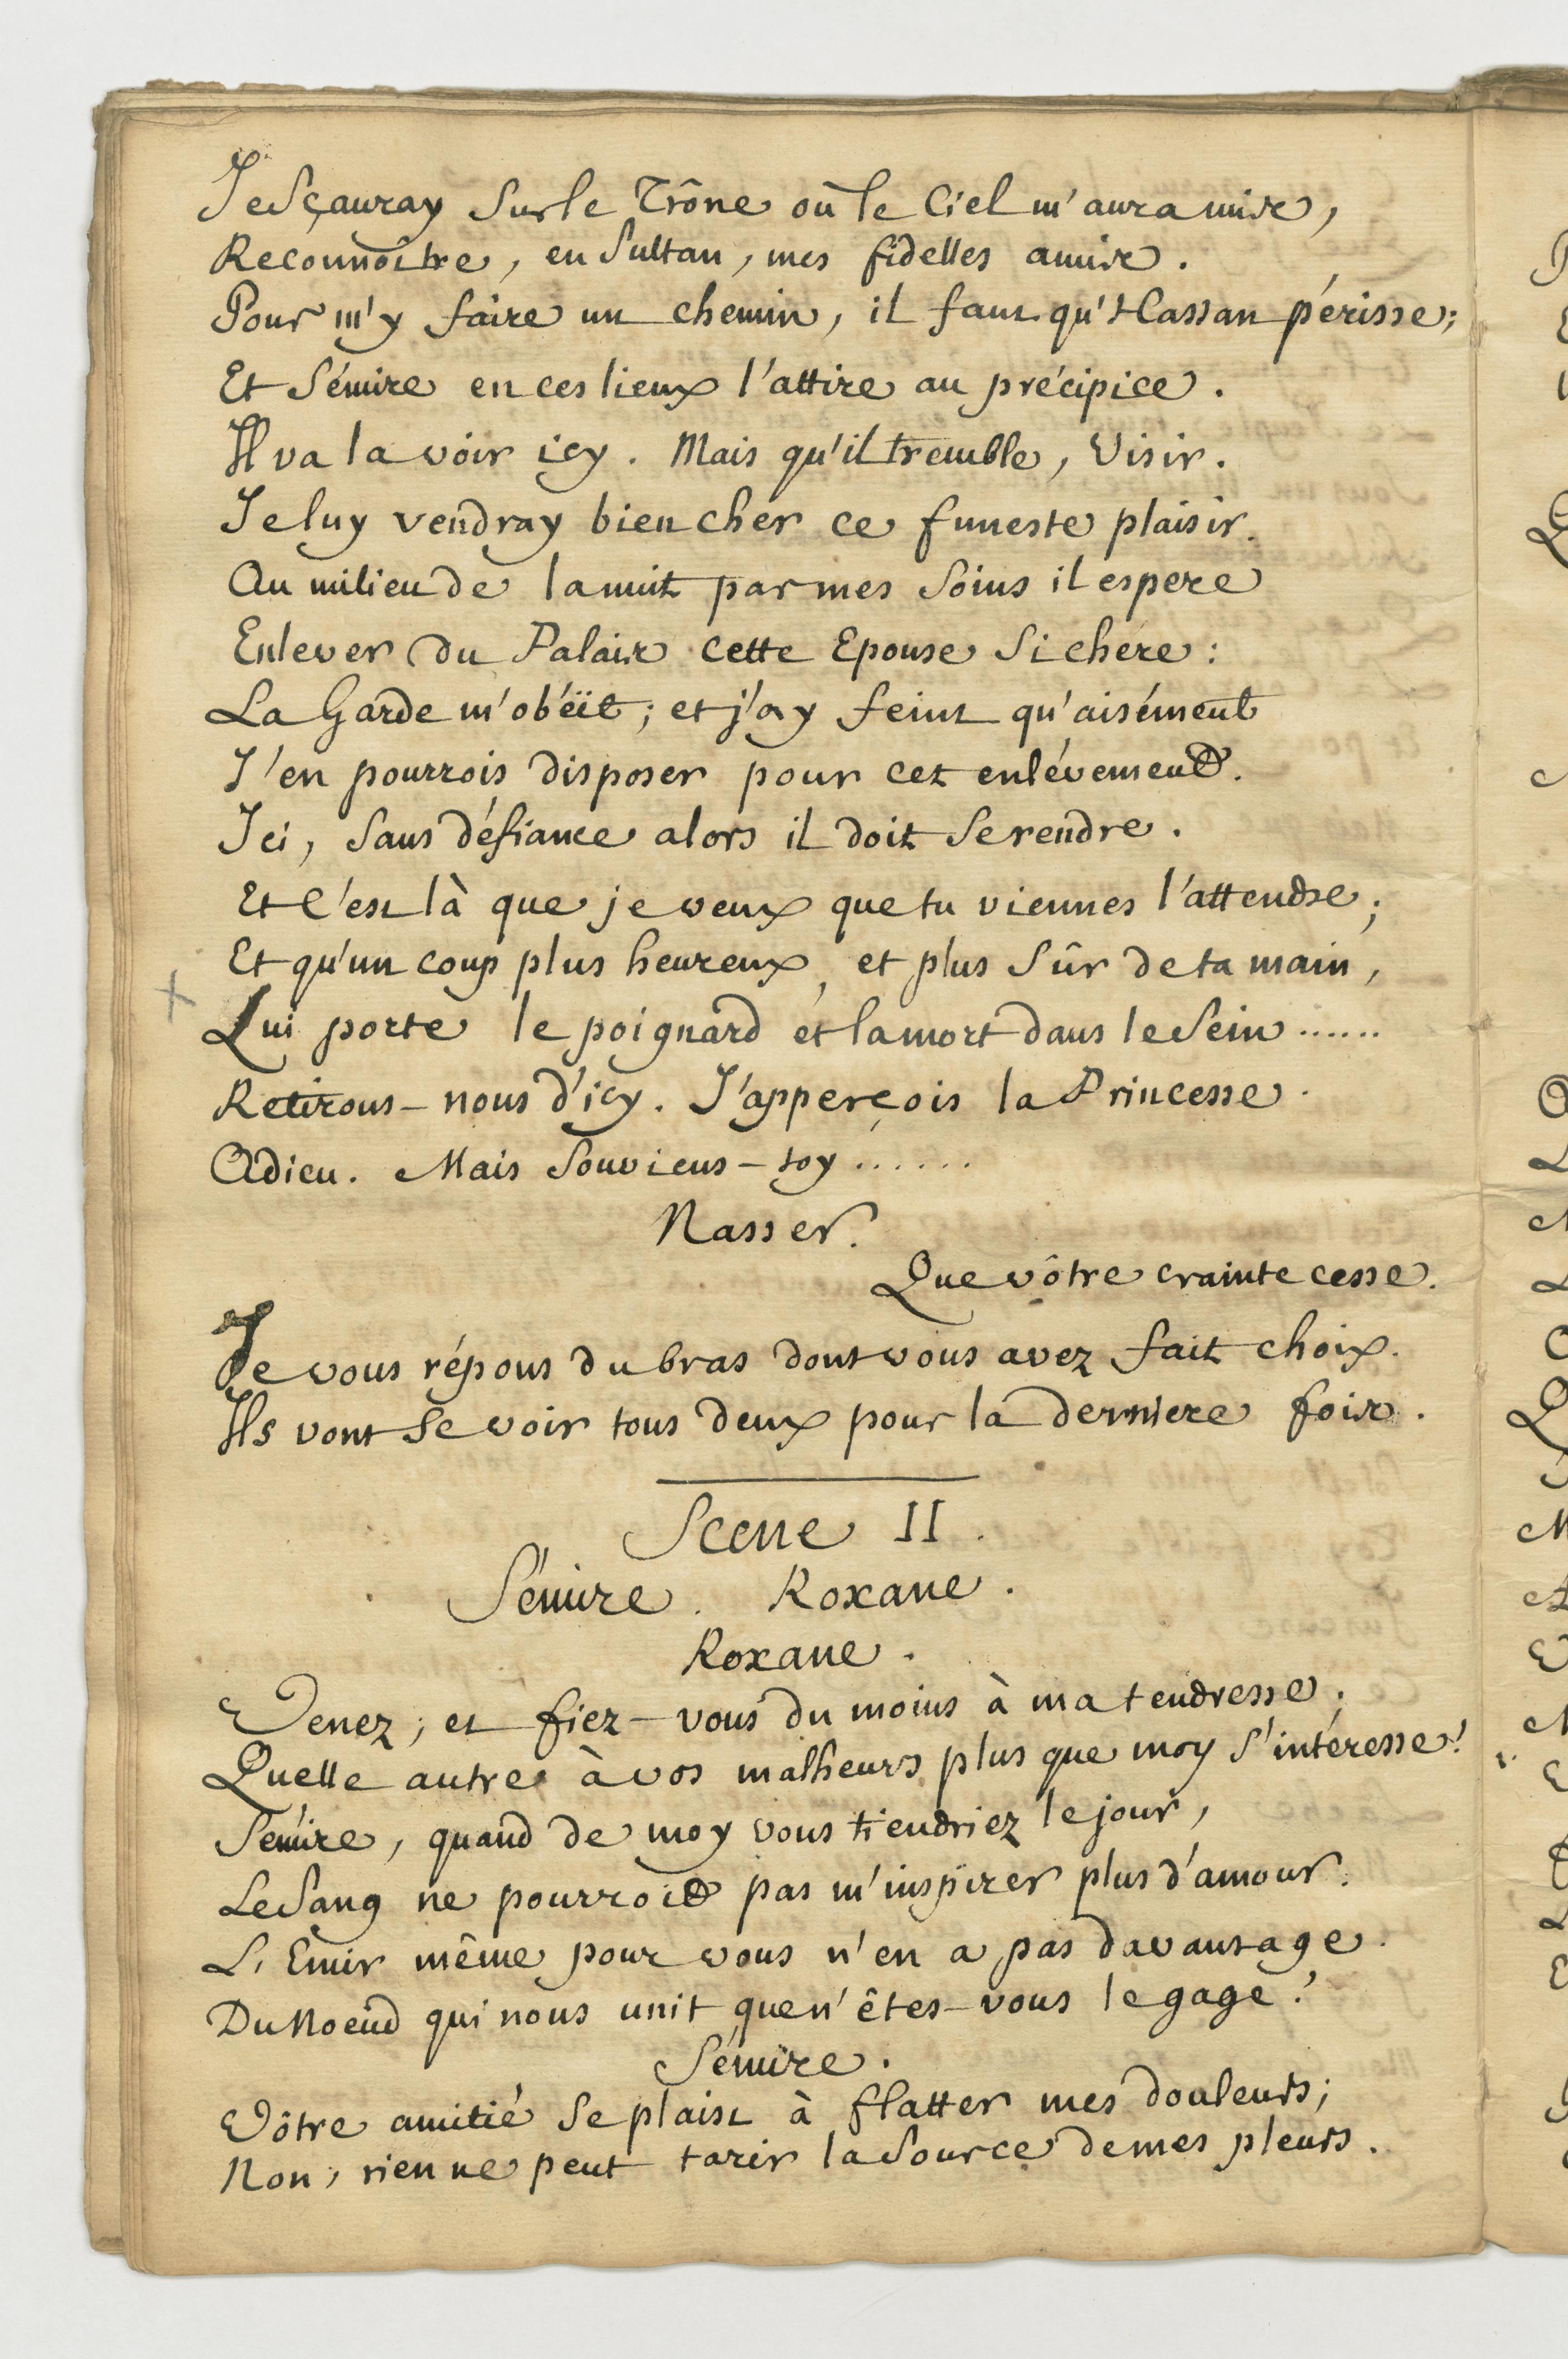 Je Sçauray Sur le Trône où le Ciel m'aura mis,
Reconnoître, en Sultan, mes fidelles amis.
Pour m'y faire un chemin, il faut qu'Hassan périsse;
Et Sémire en ces lieux l'attire au précipice.
Il va la voir icy. Mais qu'il tremble, Visir.
Je luy vendray bien cher ce funeste plaisir.
Au milieu de la nuit par mes Soins il espere
Enlever du Palais cette Epouse Si chere:
La Garde m'obéit; et j'ay feint qu'aisément
J'en pourrois disposer pour cet enlévement.
Ici, Sans défiance alors il doit Se rendre.
Et c'est là que je veux que tu viennes l'attendre;
Et qu'un coup plus heureux, et plus Sûr de ta main,
x Lui porte le poignard et la mort dans le Sein......
Retirons-nous d'icy. J'apperçois la Princesse.
Adieu. Mais Souviens-toy......
Nasser.
Que vôtre crainte cesse.
Je vous répons du bras dont vous avez fait choix.
Ils vont Se voir tous deux pour la derniere fois.
Scene II.
Sémire. Roxane.
Roxane.
Venez; et fiez-vous du moins à ma tendresse.
Quelle autre à vos malheurs plus que moy S'intéresse!
Sémire, quand de moy vous tiendriez le jour,
Le Sang ne pourroit pas m'inspirer plus d'amour.
L'Emir même pour vous n'en a pas davantage.
Du Noeud qui nous unit que n'êtes-vous le gage!
Sémire.
Vôtre amitié Se plaist à flatter mes douleurs;
Non, rien ne peut tarir la Source de mes pleurs.